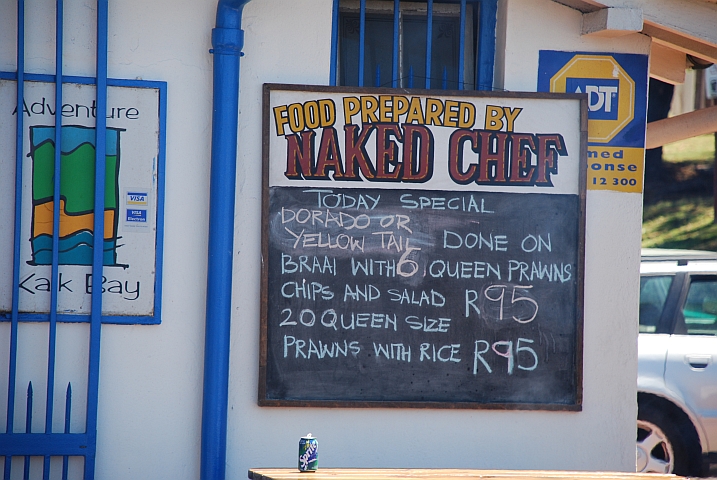 Adventure
Kalk Bay
VISA
VISA
Electron
FOOD PREPARED BY
NAKED CHEF
TODAY SPECIAL
DORADO OR
YELLOW TAIL DONE ON
BRAAI WITH 6 QUEEN PRAWNS
CHIPS AND SALAD R95
20 QUEEN SIZE
PRAWNS WITH RICE R95
ADT
med
onse
12 300
Sprite